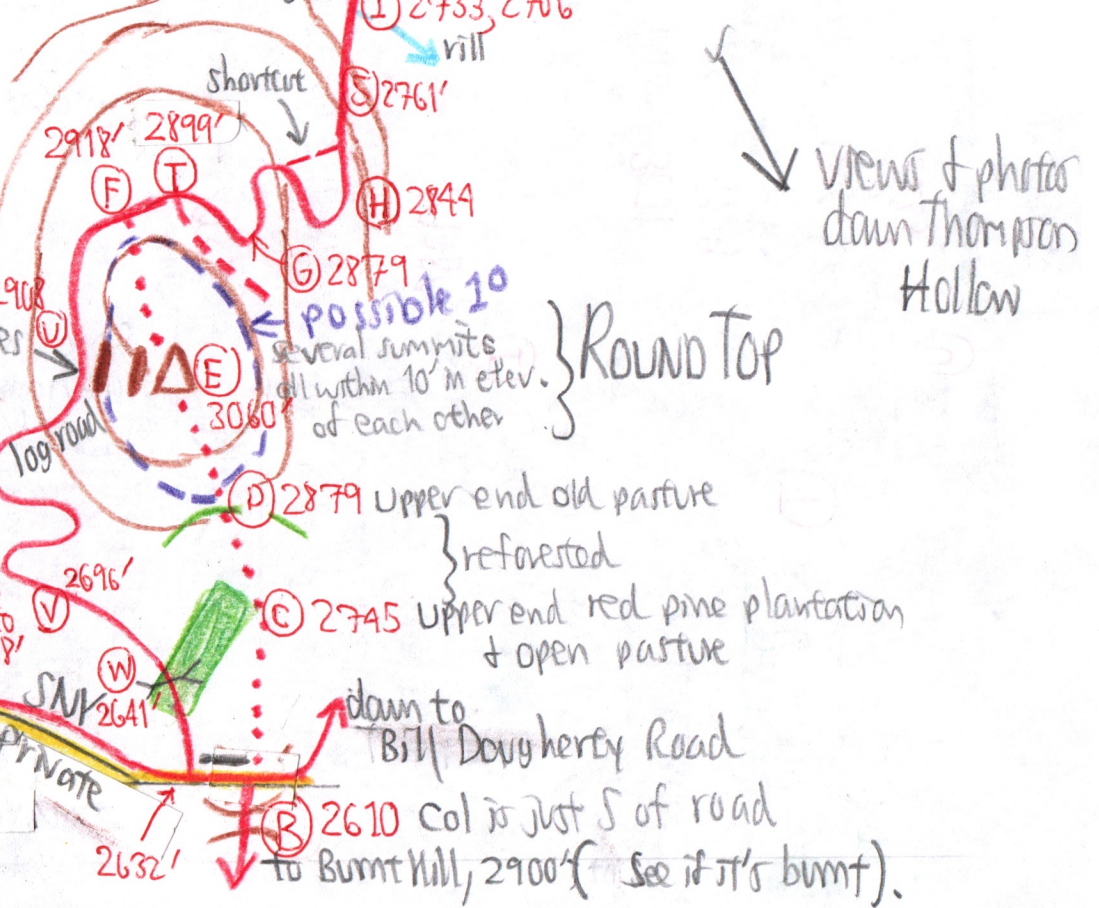 I 2733, 2706
rill
shortcut
S 2761'
2918' 2899'
F T
H 2844
views & photos
down Thompson
Hollow
G 2879
possible 1º
U
several summits
all within 10' in elev.
of each other
} ROUND TOP
E
3060'
log road
D 2879 Upper end old pasture
} reforested
2696'
V
C 2745 Upper end red pine plantation
& open pasture
W
SNY
2641'
down to
Bill Dougherty Road
Private
B 2610 Col is just S of road
2632'
to Burnt Hill, 2900' ( See if it's burnt).